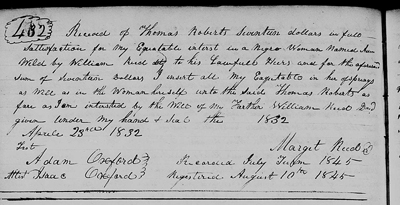 482
Received of Thomas Roberts Seventeen dollars in full
Satisfaction for my Equitable interst in a Negro Woman Named
Wild by William Reed to his Lawfull Heirs and for the aforesaid
Sum of Seventeen Dollars I insert all my Equitable in her ofsprings
as well as in the Woman himself unto the said Thomas Roberts as
fare as I am intersted by the Will of my Farther William Reed Decd
given under my hand & Seal this 1832
Aprile 28th 1832
Test Marget Reed
Adam Oxford Recorded July Term 1845
Attest Isaac Oxford Registered August 10th 1845